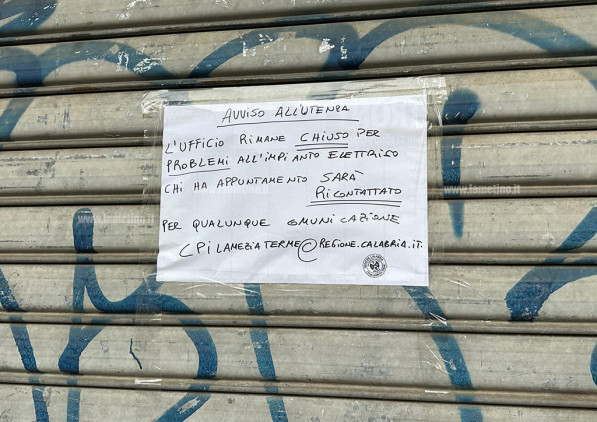 AVVISO ALL'UTENZA
L'UFFICIO RIMANE CHIUSO PER
PROBLEMI ALL'IMPIANTO ELETTRICO
CHI HA APPUNTAMENTO SARÀ
RICONTATTATO
PER QUALUNQUE COMUNICAZIONE
CPILAMEZIATERME@REGIONE.CALABRIA.IT.
www.lametino.it
www.lametino.it